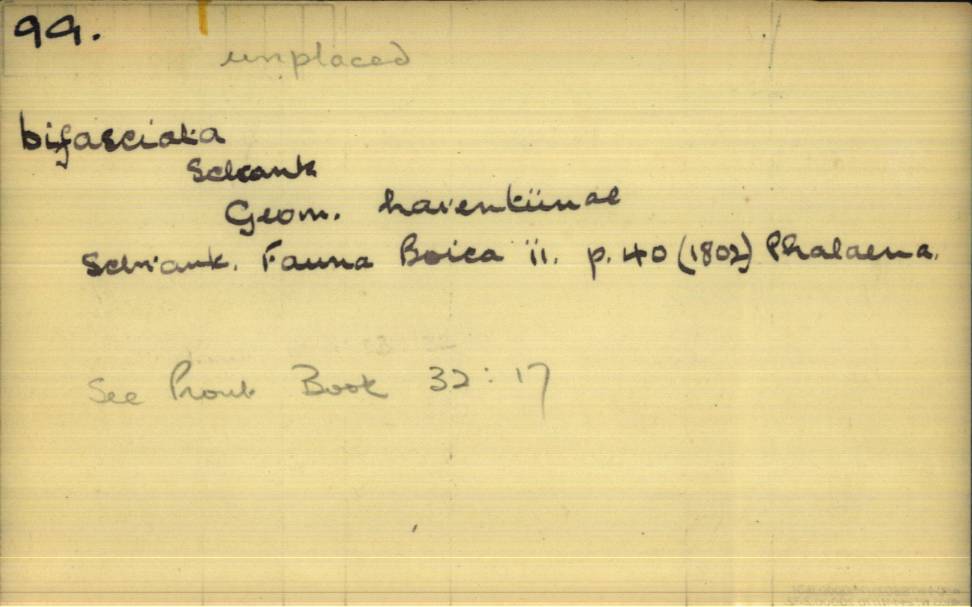 99.
unplaced
bifasciata
Schrank
Geom. larentiinae
Schrank. Fauna Boica ii. p. 40 (1802) Phalaena.
See Prout Book 32:17